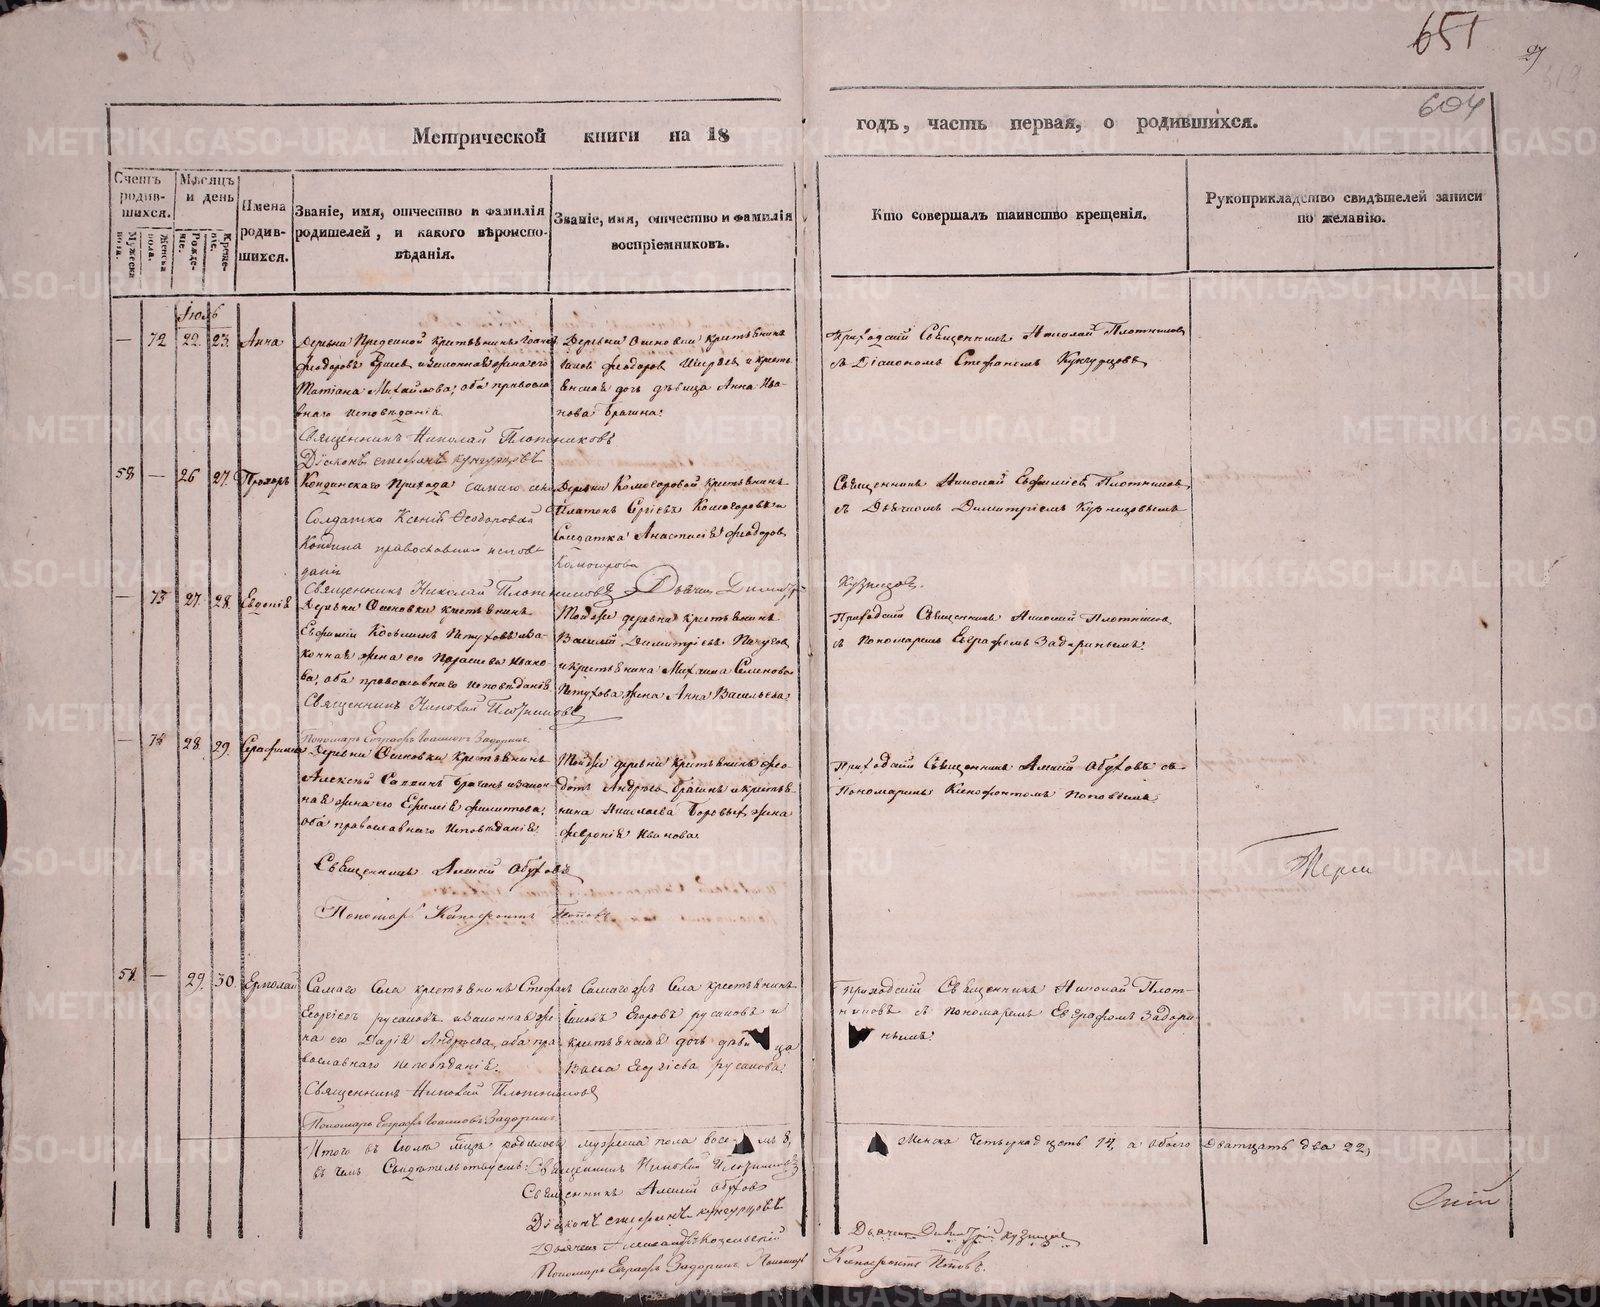 651
27
604
Метрической книги на 18
годъ, часть первая, о родившихся.
Счетъ родив-шихся.
Мужеска пола.
Женска пола.
Мѣсяцъ и день
Рожде-нія.
Креще-нія.
Имена родив-шихся.
Званіе, имя, отчество и фамилія родителей, и какого вѣроиспо-вѣданія.
Званіе, имя, отчество и фамилія воспріемниковъ.
Кто совершалъ таинство крещенія.
Рукоприкладство свидѣтелей записи по желанію.
Іюль
— 72 22. 23. Анна
крестьянинъ
законная жена его
Татіана Михайлова, оба православ
наго исповѣданія
Священникъ Николай Плотниковъ
Діаконъ Стефанъ Кунгурцовъ
Деревни крестьянинъ
Феодоровъ и кресть
дочь дѣвица Анна Ива
нова Брагина.
Приходскій Священникъ Николай Плотниковъ
съ Діакономъ Стефаномъ Кунгурцовъ
58 — 26 27. Прохоръ
Кондинскаго Прихода самаго села
Солдатка Ксенія Феодорова
Кондина православнаго исповѣ
данія
Священникъ Николай Плотниковъ Дьячекъ Димитрій
Деревни Комогоровой крестьянинъ
Платонъ Сергіевъ Комогоровъ и
Солдатка Анастасія Феодорова
Комогорова
Священникъ Николай Плотниковъ
съ Дьячкомъ Димитріемъ Кузнецовымъ
Кузнецовъ.
— 73 27. 28. Евдокія
Деревни Осиновки крестьянинъ
Евфимій Косьминъ Петуховъ и за
конная жена его Параскева Иако
ва, оба православнаго исповѣданія
Священникъ Николай Плотниковъ
Пономарь Евграфъ Іоанновъ Задоринъ
Той же деревни крестьянинъ
Василій Димитріевъ
и крестьянина Михаила Семенова
Петухова жена Анна Васильева.
Приходскій Священникъ Николай Плотниковъ
съ Пономаремъ Евграфомъ Задоринымъ.
— 74 28. 29. Серафима
Деревни Осиновки крестьянинъ
Алексѣй Саввинъ Брагинъ и закон
ная жена его Филиппова
оба православнаго исповѣданія
Священникъ Алексій Обуховъ
Пономарь Ксенофонтъ Поповъ
Той же деревни крестьянинъ Фео
дотъ Андреевъ Брагинъ и крестья
нина Николаева Боровыхъ жена
Февронія Иванова
Приходскій Священникъ Алексій Обуховъ съ
Пономаремъ Ксенофонтомъ Поповымъ.
59. — 29. 30. Ермолай
Самаго Села крестьянинъ Стефанъ
Георгіевъ Русаковъ и законная же
на его Дарія Андреева, оба пра
вославнаго исповѣданія.
Священникъ Николай Плотниковъ
Пономарь Евграфъ Іоанновъ Задоринъ
Самаго же Села крестьянинъ
Іаковъ Егоровъ Русаковъ и
крестьянская дочь дѣвица
Васса Георгіева Русакова.
Приходскій Священникъ Николай Плот-
никовъ съ Пономаремъ Евграфомъ Задори
нымъ.
Итого въ Іюлѣ мцѣ родилось мужеска пола восемь 8,
Женска Четырнадцать 14, а обоего Двадцать два 22,
въ чемъ Свидѣтельствуемъ: Священникъ Николай Плотниковъ
Священникъ Алексій Обуховъ
Діаконъ Стефанъ Кунгурцовъ
Дьячекъ Александръ Козельскій
Дьячекъ Димитрій Кузнецовъ
Пономарь Евграфъ Задоринъ Пономарь
Ксенофонтъ Поповъ.
METRIKI.GASO-URAL.RU